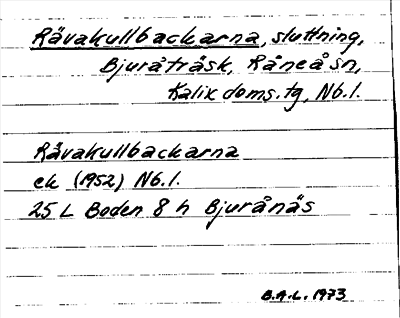 Råvakullbackarna, sluttning,
Bjuråträsk, Råneå sn,
Kalix doms.tg, Nb.l.
Råvakullbackarna
ek (1952) Nb.l.
25 L Boden 8 h Bjurånäs
B.A.L. 1973